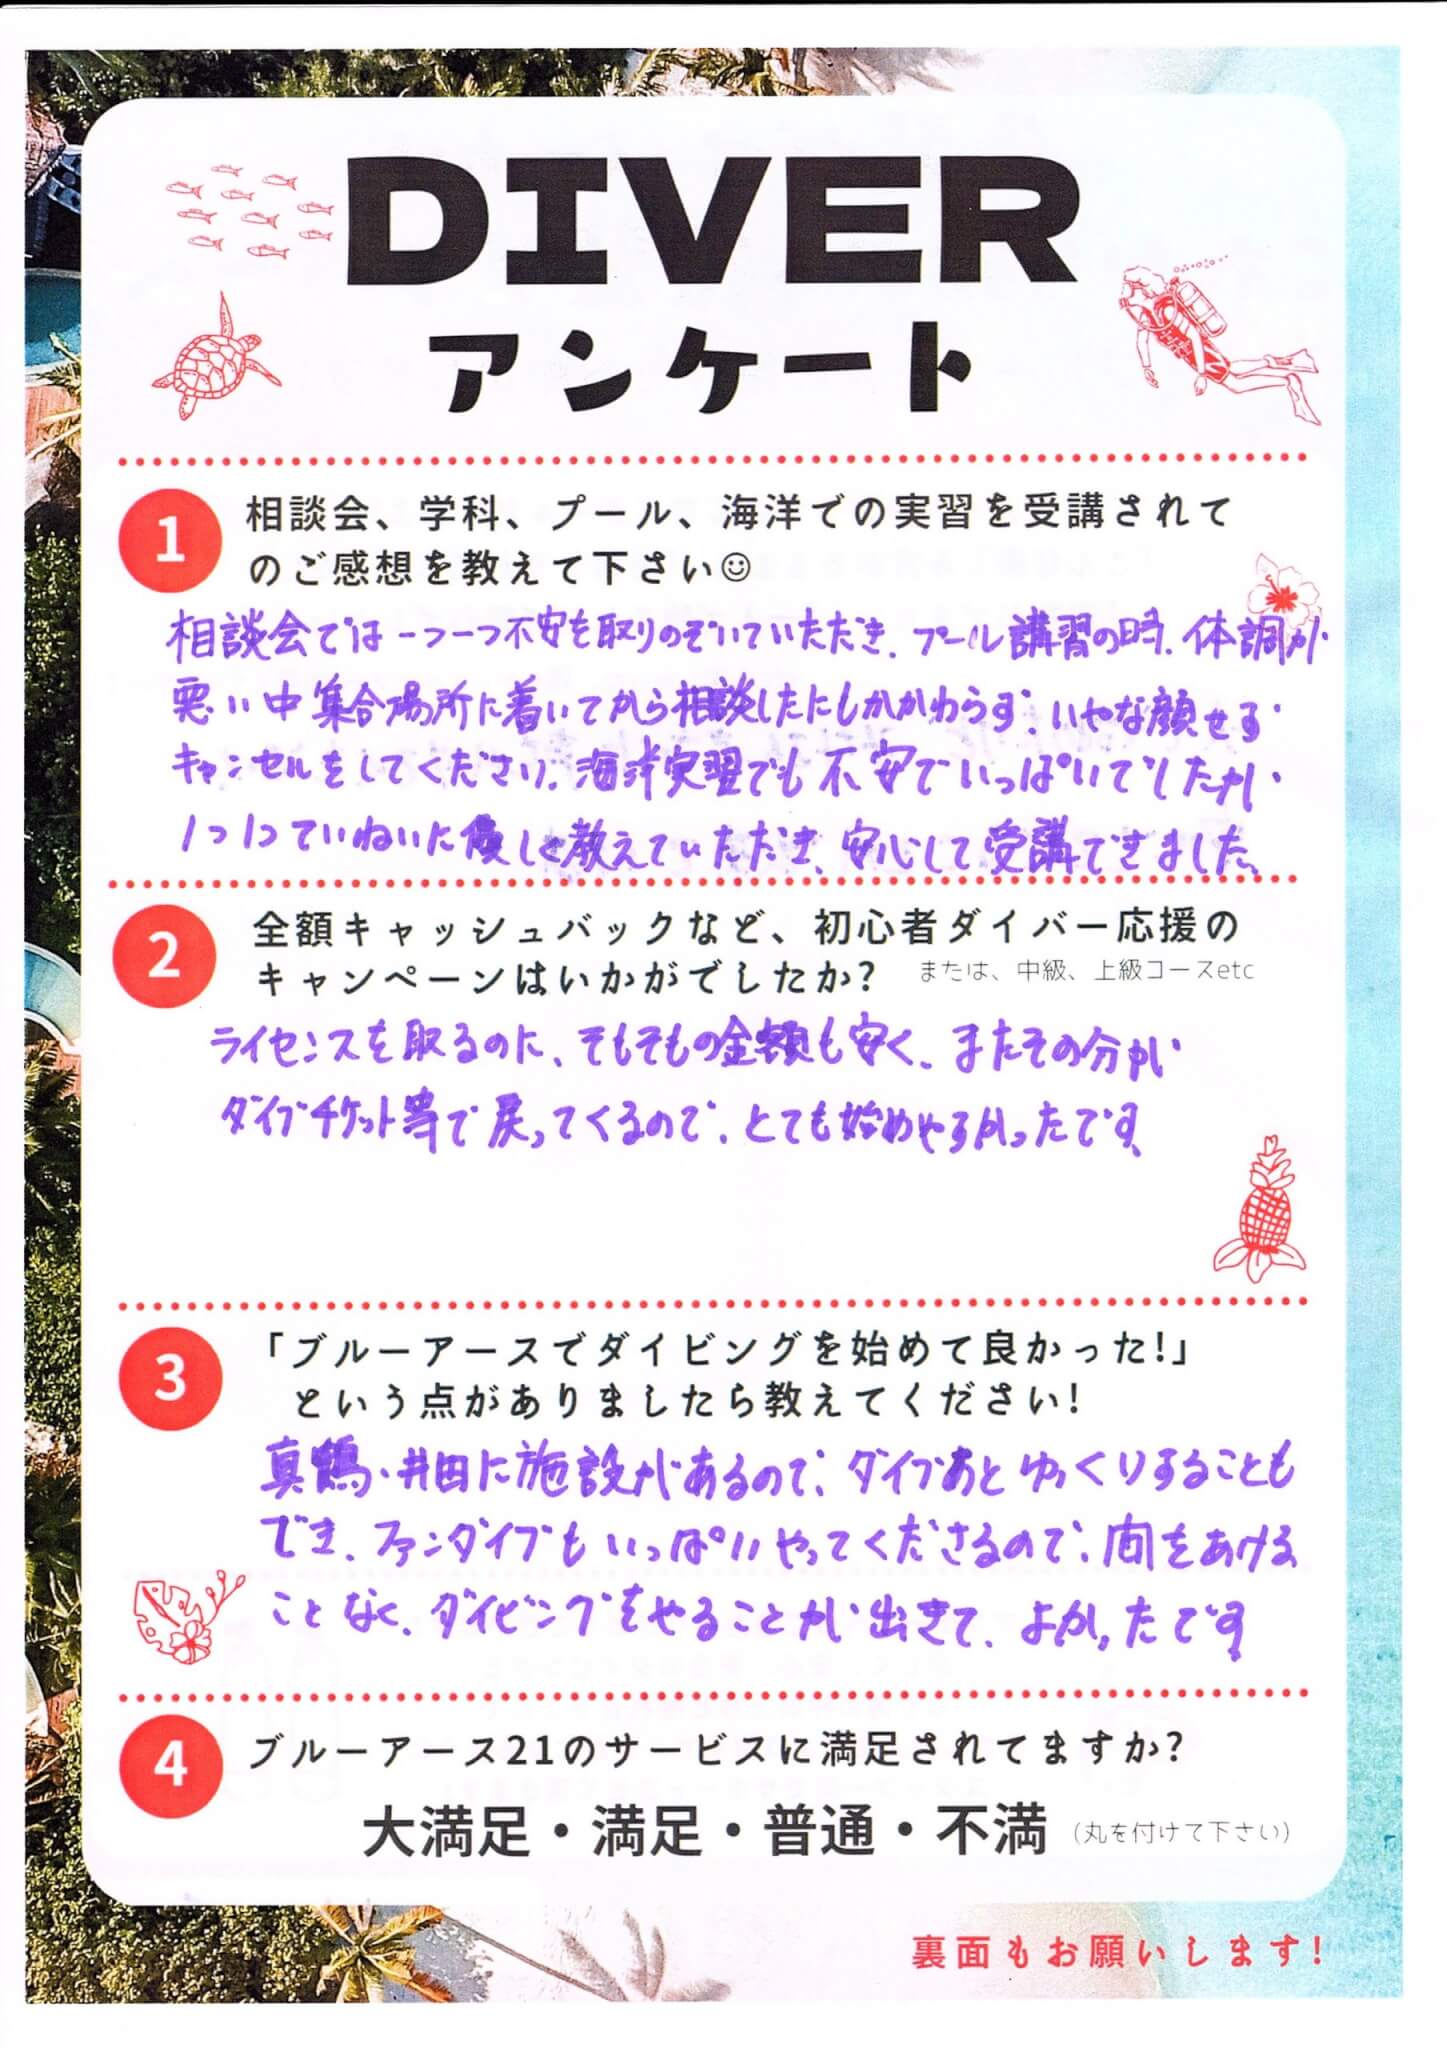 DIVER
アンケート
1 相談会、学科、プール、海洋での実習を受講されて
のご感想を教えて下さい☺
相談会では一つ一つ不安を取りのぞいていただき、プール講習の時、体調が
悪い中集合場所に着いてから相談したにもかかわらず、いやな顔せず
キャンセルをしてくださり、海洋実習でも不安でいっぱいでしたが、
1つ1つていねいに優しく教えていただき、安心して受講できました。
2 全額キャッシュバックなど、初心者ダイバー応援の
キャンペーンはいかがでしたか? または、中級、上級コースetc
ライセンスを取るのに、そもそもの金額も安く、またその分が
ダイブチケット等で戻ってくるので、とても始めやすかったです。
3 「ブルーアースでダイビングを始めて良かった!」
という点がありましたら教えてください!
真鶴・井田に施設があるので、ダイブあとゆっくりすることも
でき、ファンダイブもいっぱいやってくださるので、間をあける
ことなく、ダイビングをやることが出きて、よかったです。
4 ブルーアース21のサービスに満足されてますか?
大満足・満足・普通・不満 (丸を付けて下さい)
裏面もお願いします!